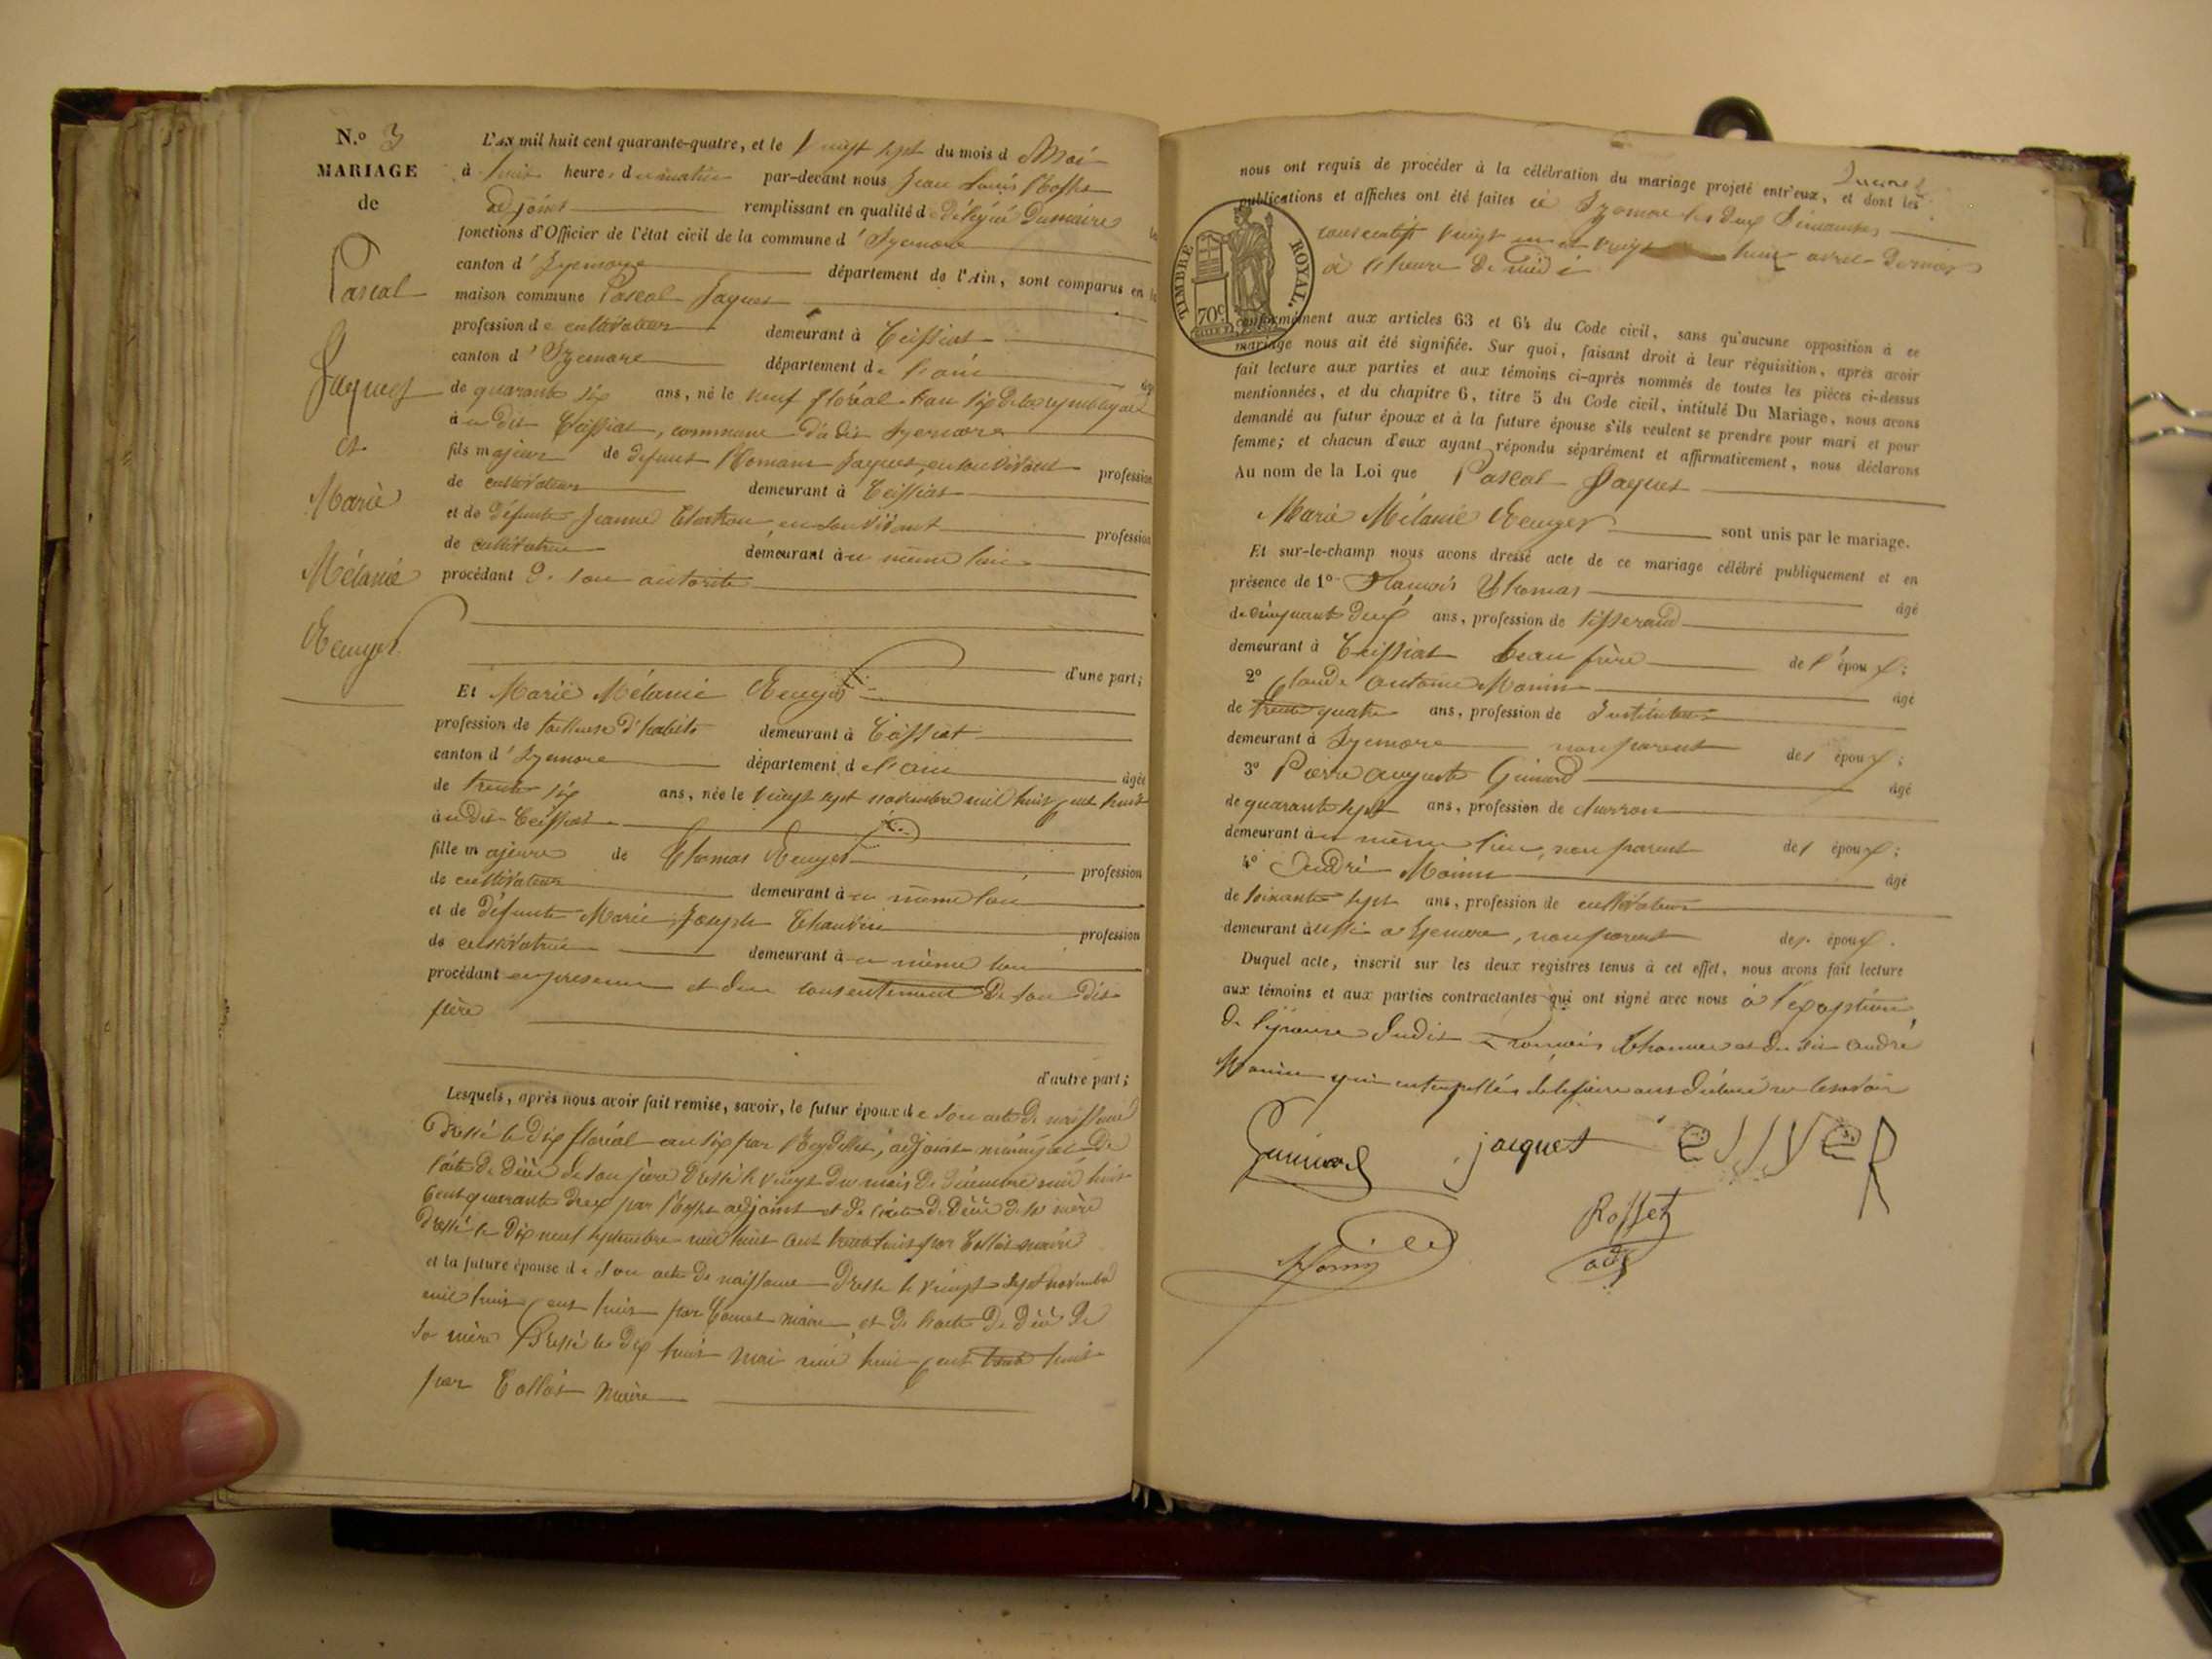 N.º 3
MARIAGE
de
Pascal
Jaques
et
Marie
Mélanie
L'AN mil huit cent quarante-quatre, et le vingt sept du mois d Mai
à huit heures du matin par-devant nous Jean Louis Rosset
adjoint remplissant en qualité de délégué Du maire
fonctions d'Officier de l'état civil de la commune d'Izernore
canton d'Izernore département de l'Ain, sont comparus en la
maison commune Pascal Jaques
profession de cultivateur demeurant à Ceissiat
canton d'Izernore département de l'ain
de quarante six ans, né le neuf floréal l'an six
à u dit Ceissiat, commune Izernore
fils majeur de defunt Romain Jaques, en son vivant profession
de cultivateur demeurant à Ceissiat
et de défunte Jeanne en son vivant profession
de cultivatrice demeurant à u même lieu
procédant De son autorité
d'une part;
Et Marie Mélanie
profession de tailleuse d'habits demeurant à Ceissiat
canton d'Izernore département de l'ain âgée
de trente six ans, née le vingt sept novembre mil huit cent huit
à u dit Ceissiat
fille majeure de Thomas profession
de cultivateur demeurant à u même lieu
et de défunte Marie Joseph Chanvin profession
de cultivatrice demeurant à u même lieu
procédant en présence et du consentement De son dit
père
d'autre part;
Lesquels, après nous avoir fait remise, savoir, le futur époux de son acte De naissance
Dressé le Dix floréal an six par adjoint De
l'acte De décès De son père Dressé le vingt Du mois De décembre mil huit
cent quarante Deux par Rosset adjoint et De l'acte De Décès De sa mère
Dressé le Dix neuf septembre mil huit cent trente huit par maire
et la future épouse de son acte De naissance Dressé le vingt sept novembre
mil huit cent huit par maire et De l'acte De Décès De
sa mère Dressé le Dix huit Mai mil huit cent trente huit
par maire
nous ont requis de procéder à la célébration du mariage projeté entr'eux, et dont les
publications et affiches ont été faites à Izernore les deux Dimanches
consécutifs vingt un et vingt huit avril Dernier
à l'heure De midi
TIMBRE ROYAL.
70c
conformément aux articles 63 et 64 du Code civil, sans qu'aucune opposition à ce
mariage nous ait été signifiée. Sur quoi, faisant droit à leur réquisition, après avoir
fait lecture aux parties et aux témoins ci-après nommés de toutes les pièces ci-dessus
mentionnées, et du chapitre 6, titre 5 du Code civil, intitulé Du Mariage, nous avons
demandé au futur époux et à la future épouse s'ils veulent se prendre pour mari et pour
femme; et chacun d'eux ayant répondu séparément et affirmativement, nous déclarons
Au nom de la Loi que Pascal Jaques
Marie Mélanie sont unis par le mariage.
Et sur-le-champ nous avons dressé acte de ce mariage célébré publiquement et en
présence de 1º François Thomas âgé
de cinquante Deux ans, profession de tisserand
demeurant à Ceissiat beau frère de l'époux;
2º Claude Antoine Monin âgé
de trente quatre ans, profession de Instituteur
demeurant à Izernore non parent des époux;
3º Pierre Auguste Guinard âgé
de quarante sept ans, profession de charron
demeurant à u même lieu, non parent des époux;
4º André Monin âgé
de soixante sept ans, profession de cultivateur
demeurant aussi à Izernore, non parent des époux.
Duquel acte, inscrit sur les deux registres tenus à cet effet, nous avons fait lecture
aux témoins et aux parties contractantes qui ont signé avec nous à l'exception
De l'épouse Dudit François Thomas et du dit André
Monin qui interpellés de le faire ont Déclaré ne le savoir
Guinard jacquet
Monin Rosset
adj